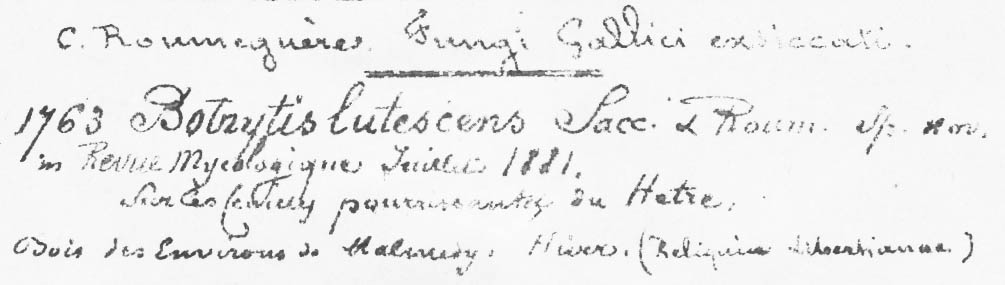 C. Roumeguère. Fungi Gallici exsiccati.
1763 Botrytis lutescens Sacc. & Roum. Sp. nov.
in Revue Mycologique Juillet 1881.
Sur les feuilles pourrissantes du Hetre.
Bois des Environs de Malmedy. Hiver. (Reliquiae Libertianae.)